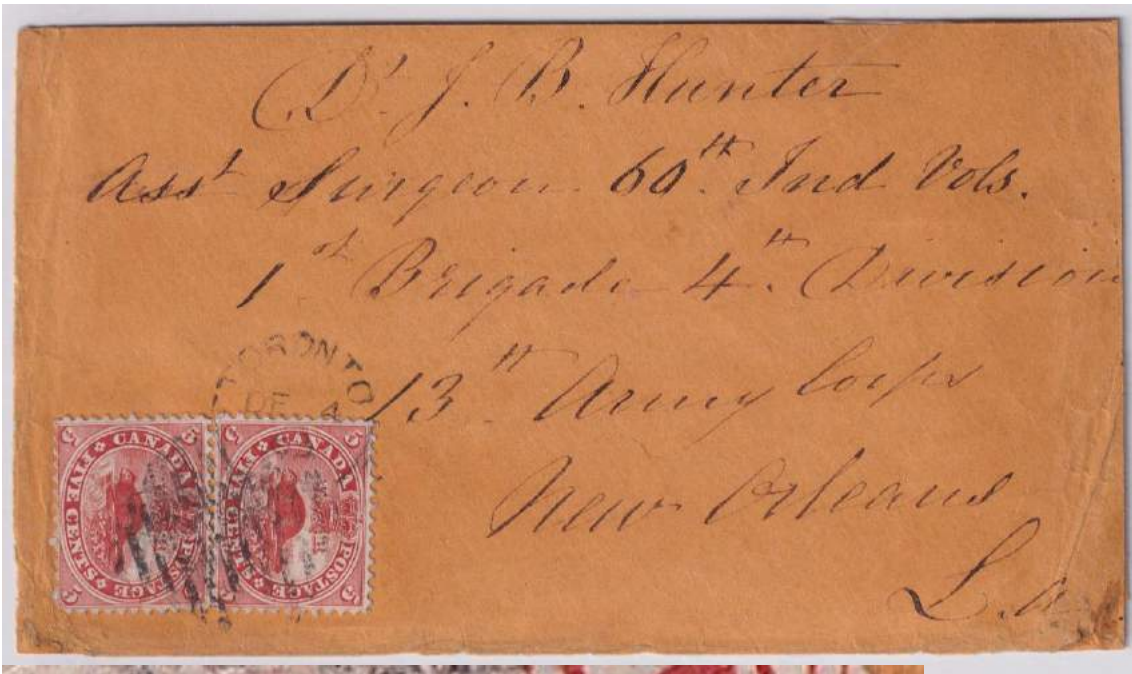 Dr. J. B. Hunter
Asst Surgeon 60th Ind Vols.
1st Brigade 4th Division
13th Army Corps
New Orleans
La.
TORONTO
DE 4
5 5
CANADA POSTAGE
FIVE CENTS
5 5
5 5
CANADA POSTAGE
FIVE CENTS
5 5